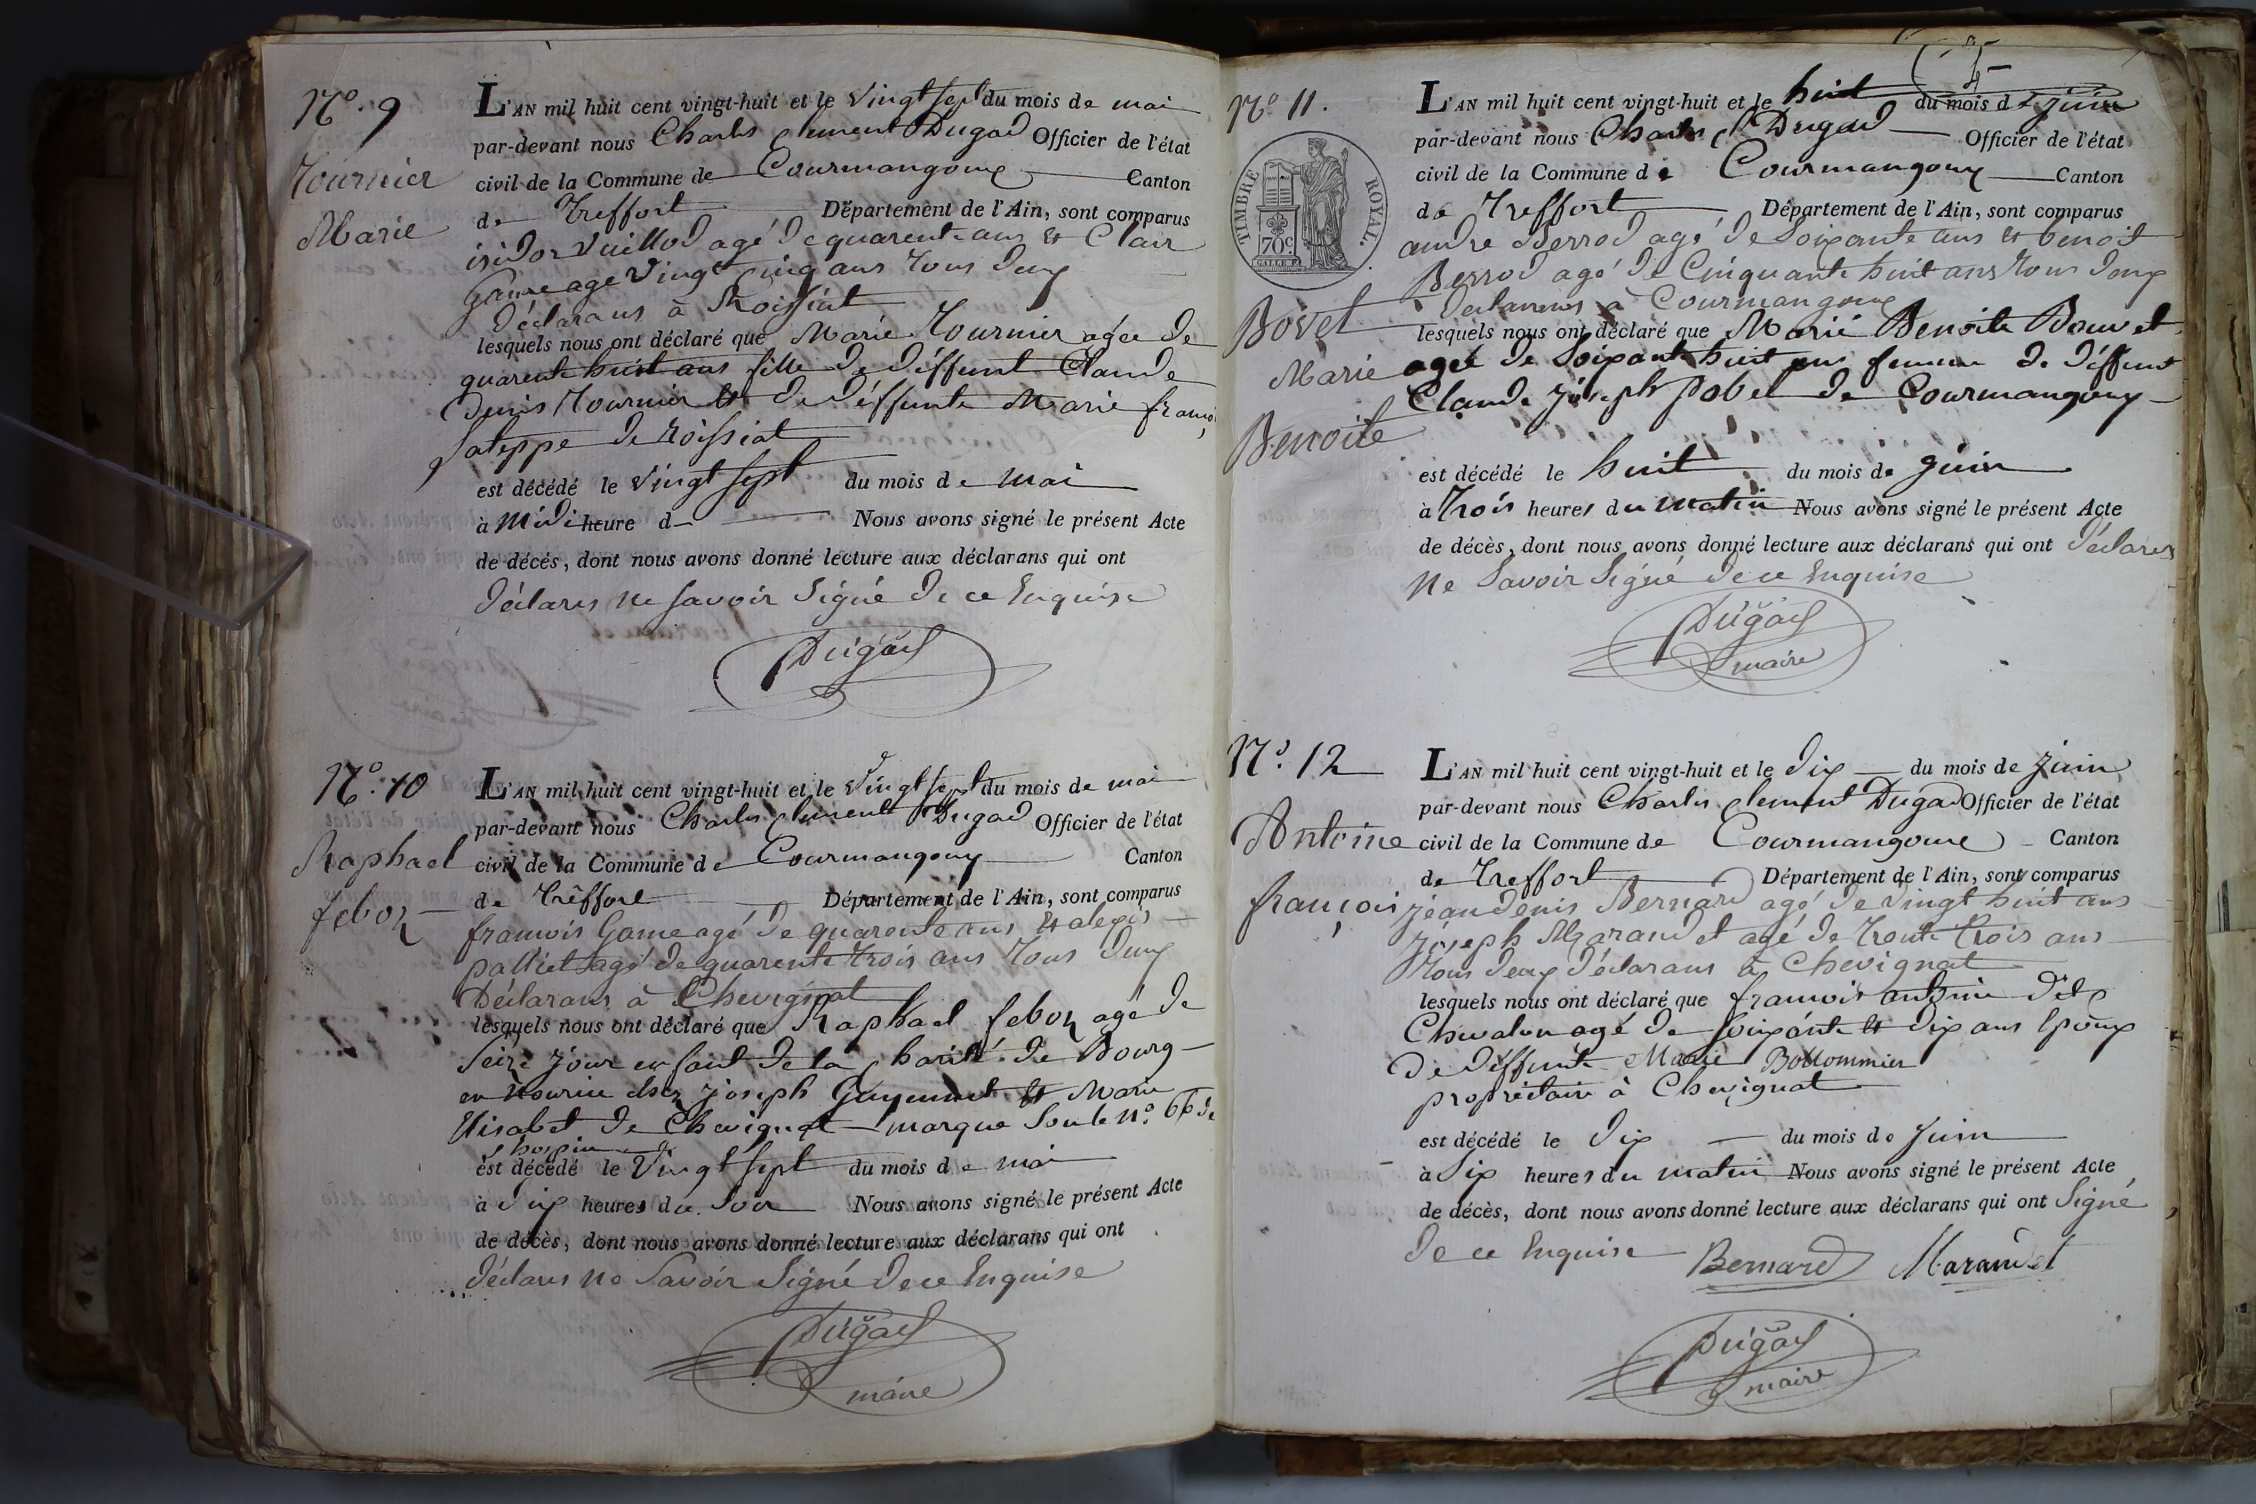 N.º 9
Tournier
Marie
L'AN mil huit cent vingt-huit et le vingt sept du mois de mai
par-devant nous Charles clement Dugad Officier de l'état
civil de la Commune de Courmangoux Canton
de Treffort Département de l'Ain, sont comparus
isidor Vuillod agé de quarente ans et Clair
Game age vingt cinq ans tous deux
déclarans à Roissiat
lesquels nous ont déclaré que Marie Tournier agée de
quarente huit ans fille de déffunt Claude
denis Tournier et de déffunte Marie
de roissiat
est décédé le vingt sept du mois de mai
à Midi heure d Nous avons signé le présent Acte
de décés, dont nous avons donné lecture aux déclarans qui ont
déclares ne savoir signé de ce Enquise
Dugad
N.º 10
Raphael
febon
L'AN mil huit cent vingt-huit et le vingt sept du mois de mai
par-devant nous Charles clement Dugad Officier de l'état
civil de la Commune de Courmangoux Canton
de Treffort Département de l'Ain, sont comparus
francois Game agé de quarente ans et alexis
palliet agé de quarente trois ans tous deux
Déclarans à Chevignat
lesquels nous ont déclaré que Raphael febon agé de
seize jour enfant de la charité de Bourg
en nourice chez joseph et Marie
Elisabet de Chevignat marque sou le n.º 66 de
est décédé le vingt sept du mois de mai
à dix heures du soir Nous avons signé le présent Acte
de décès, dont nous avons donné lecture aux déclarans qui ont
déclares ne savoir signé de ce Enquise
Dugad
maire
N.º 11.
TIMBRE ROYAL.
70c
Bovet
Marie
Benoite
L'AN mil huit cent vingt-huit et le huit du mois de juin
par-devant nous Charles Cl Dugad Officier de l'état
civil de la Commune de Courmangoux Canton
de Treffort Département de l'Ain, sont comparus
andre Berrod agé de soixante ans et benoit
Berrod agé de Cinquante huit ans tous deux
declarans à Courmangoux
lesquels nous ont déclaré que Marie Benoite Bouvet
agée de soixante huit ans femme de déffunt
Claude joseph pobel de Courmangoux
est décédé le huit du mois de juin
à Trois heures du matin Nous avons signé le présent Acte
de décès, dont nous avons donné lecture aux déclarans qui ont déclares
ne savoir signé de ce Enquise
Dugad
maire
N.º 12
Antoine
françois
L'AN mil huit cent vingt-huit et le dix du mois de juin
par-devant nous Charles clement Dugad Officier de l'état
civil de la Commune de Courmangoux Canton
de Treffort Département de l'Ain, sont comparus
jean denis Bernard agé de vingt huit ans
joseph Marandet agé de trente trois ans
tous deux déclarans à Chevignat
lesquels nous ont déclaré que francois antoine dit
Chevalon agé de soixante et dix ans Epoux
de déffunte Marie Bottommier
propriétaire à Chevignat
est décédé le dix du mois de juin
à six heures du matin Nous avons signé le présent Acte
de décès, dont nous avons donné lecture aux déclarans qui ont signé
de ce Enquise Bernard Marandet
Dugad
maire